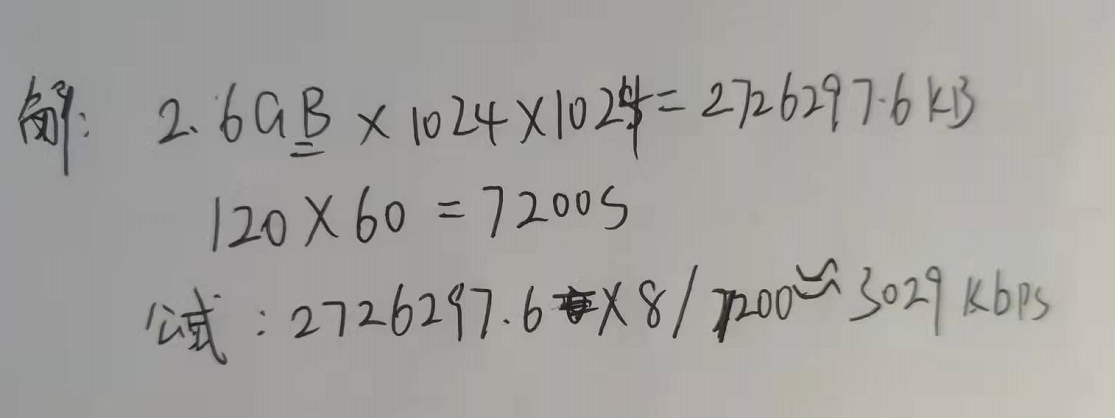 解: 2.6GB × 1024 × 1024 = 2726297.6 KB
120 × 60 = 7200S
公式: 2726297.6 × 8 / 7200 ≌ 3029 Kbps